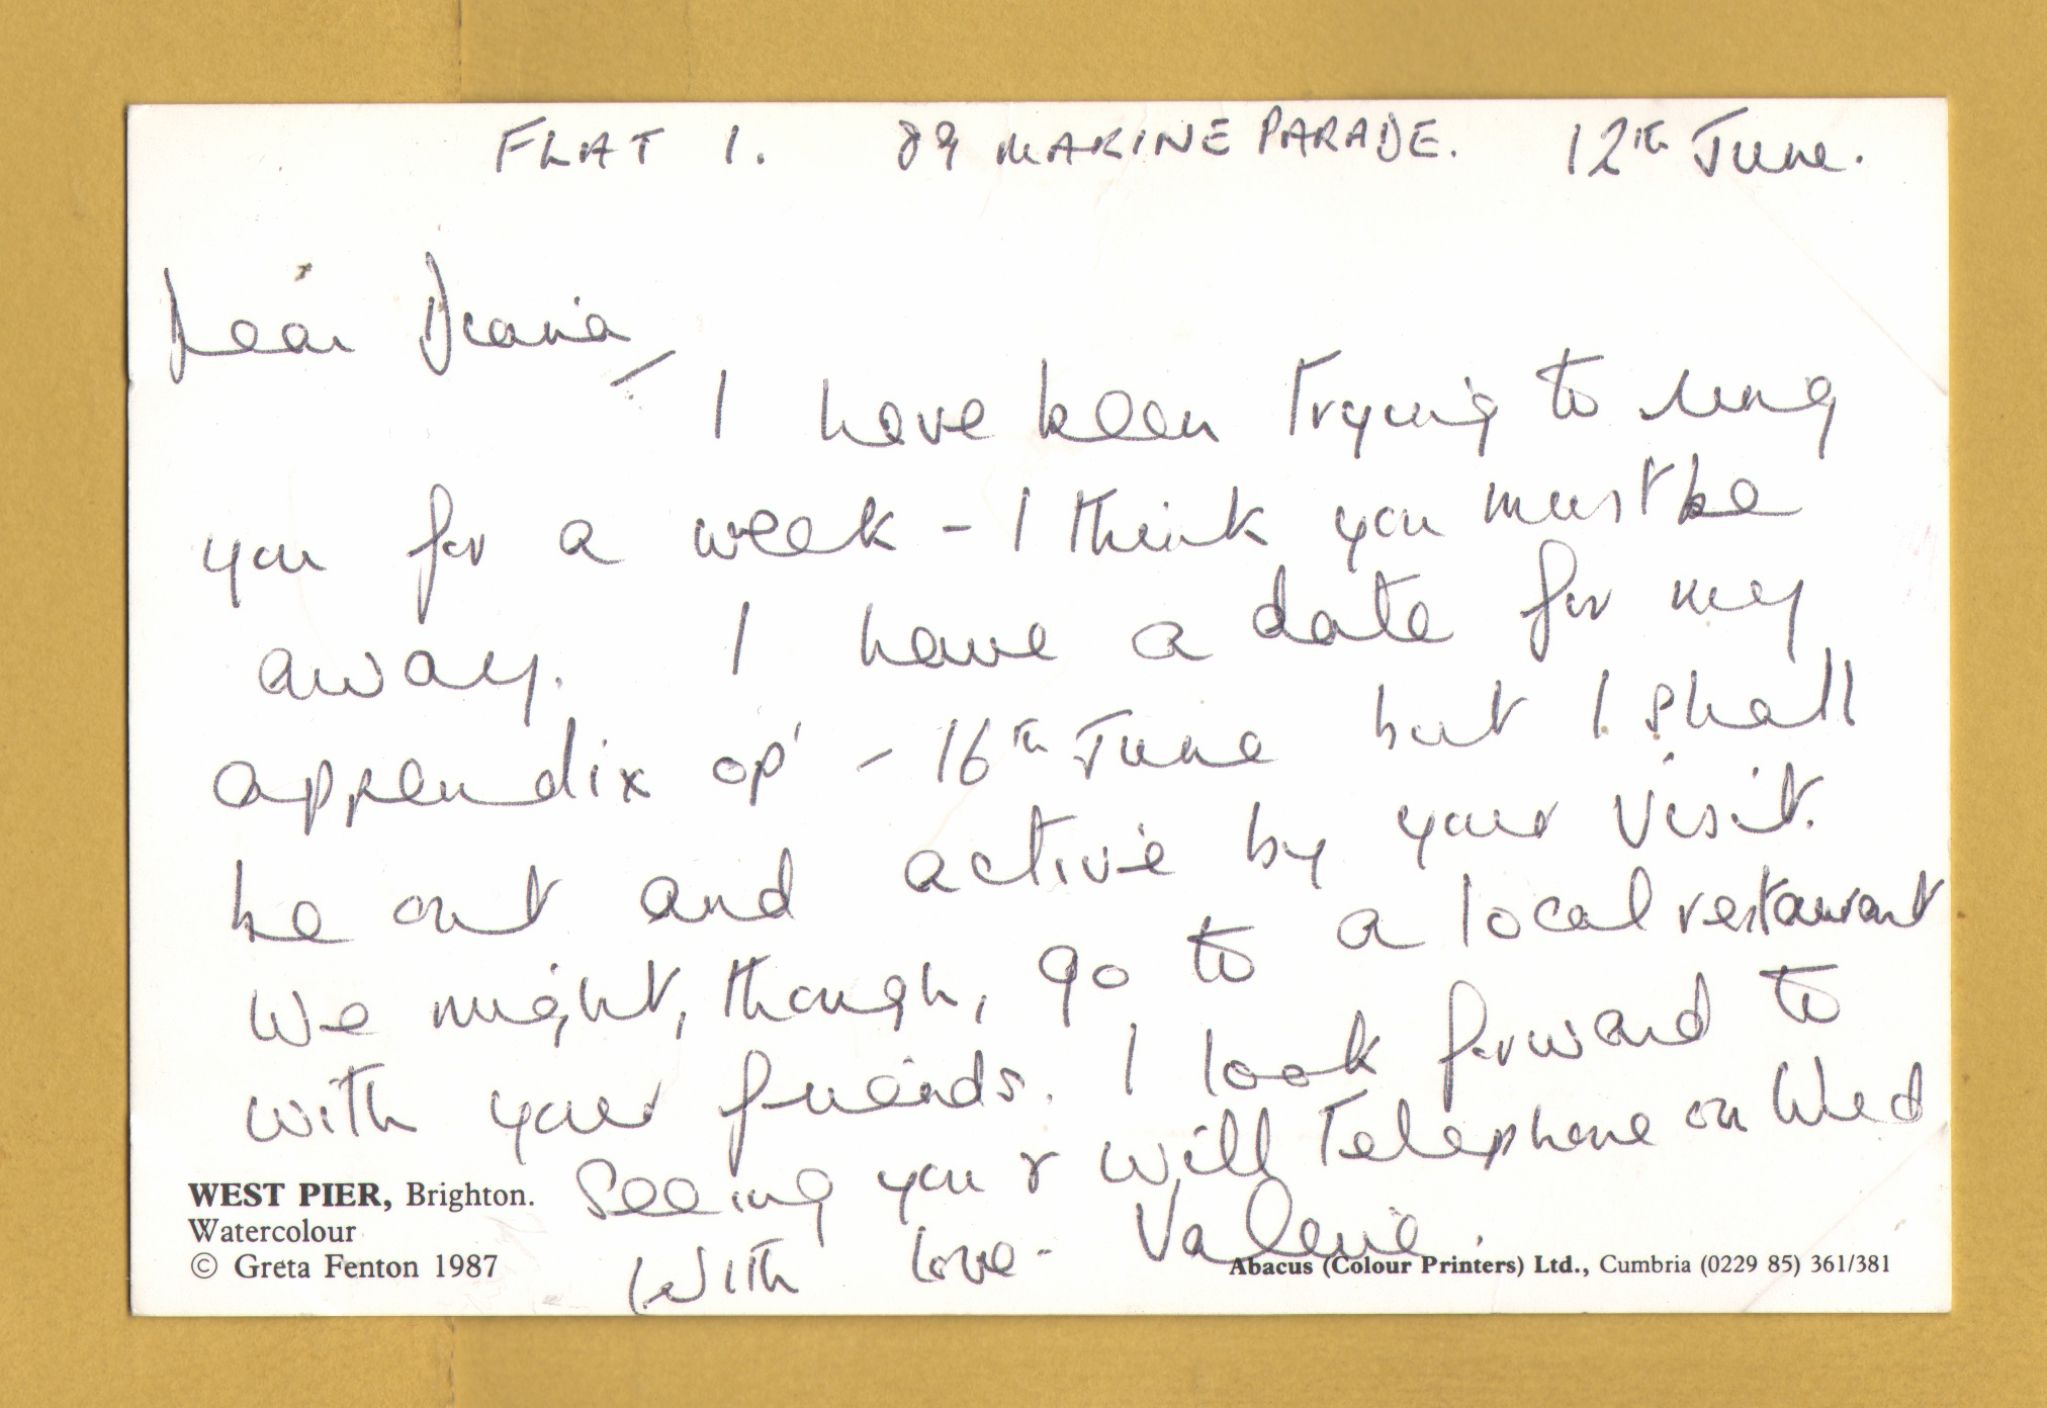 FLAT 1. 89 MARINE PARADE. 12TH June.
Dear Diana,
I have been trying to ring
you for a week - I think you must be
away. I have a date for my
appendix op' - 16TH June but I shall
be out and active by your visit.
We might, though, go to a local restaurant
with your friends. I look forward to
seeing you & will telephone on Wed
With love - Valerie.
WEST PIER, Brighton.
Watercolour
© Greta Fenton 1987
Abacus (Colour Printers) Ltd., Cumbria (0229 85) 361/381